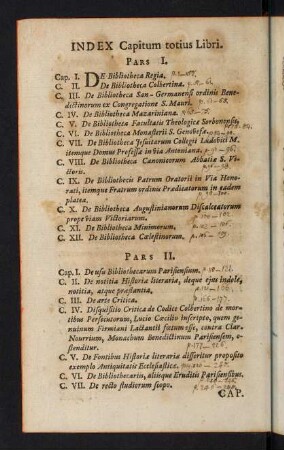 INDEX Capitum totius Libri.
PARS I.
Cap. I. DE Bibliotheca Regia,
C. II. De Bibliotheca Colbertina.
C. III. De Bibliotheca San-Germanensi ordinis Bene-
dictinorum ex Congregatione S. Mauri.
C. IV. De Bibliotheca Mazariniana.
C. V. De Bibliotheca Facultatis Theologicæ Sorbonensis,
C. VI. De Bibliotheca Monasterii S. Genovefæ.
C. VII. De Bibliotheca Jesuitarum Collegii Ludovici M.
itemque Domus Professæ in via Antoniana.
C. VIII. De Bibliotheca Canonicorum Abbatiæ S. Vi-
ctoris.
C. IX. De Bibliothecis Patrum Oratorii in Via Hono-
rati, itemque Fratrum ordinis Prædicatorum in eadem
platea.
C. X. De Bibliotheca Augustinianorum Discalceatorum
prope viam Victoriarum.
C. XI. De Bibliotheca Minimorum.
C. XII. De Bibliotheca Cœlestinorum.
PARS II.
Cap. I. De usu Bibliothecarum Parisiensium.
C. II. De notitia Historiæ literariæ, deque ejus indole,
notitia, atque præstantia,
C. III. De arte Critica.
C. IV. Disquisitio Critica de Codice Colbertino de mor-
tibus Persecutorum, Lucio Cæcilio inscripto, quem ge-
nuinum Firmiani Lactantii fœtum esse, contra Clar.
Nourrium, Monachum Benedictinum Parisiensem, o-
stenditur.
C. V. De Fontibus Historiæ literariæ disseritur proposito
exemplo Antiquitatis Ecclesiasticæ.
C. VI. De Bibliothecariis, aliisque Eruditis Parisiensibus.
C. VII. De recto studiorum scopo.
CAP.